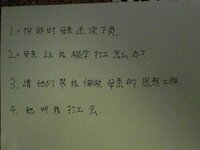 1. 但那时母亲还没下岗.
2. 母亲让我辍学打工怎么办?
3. 请他们帮我做做母亲的思想工作
4. 她叫我打工去.